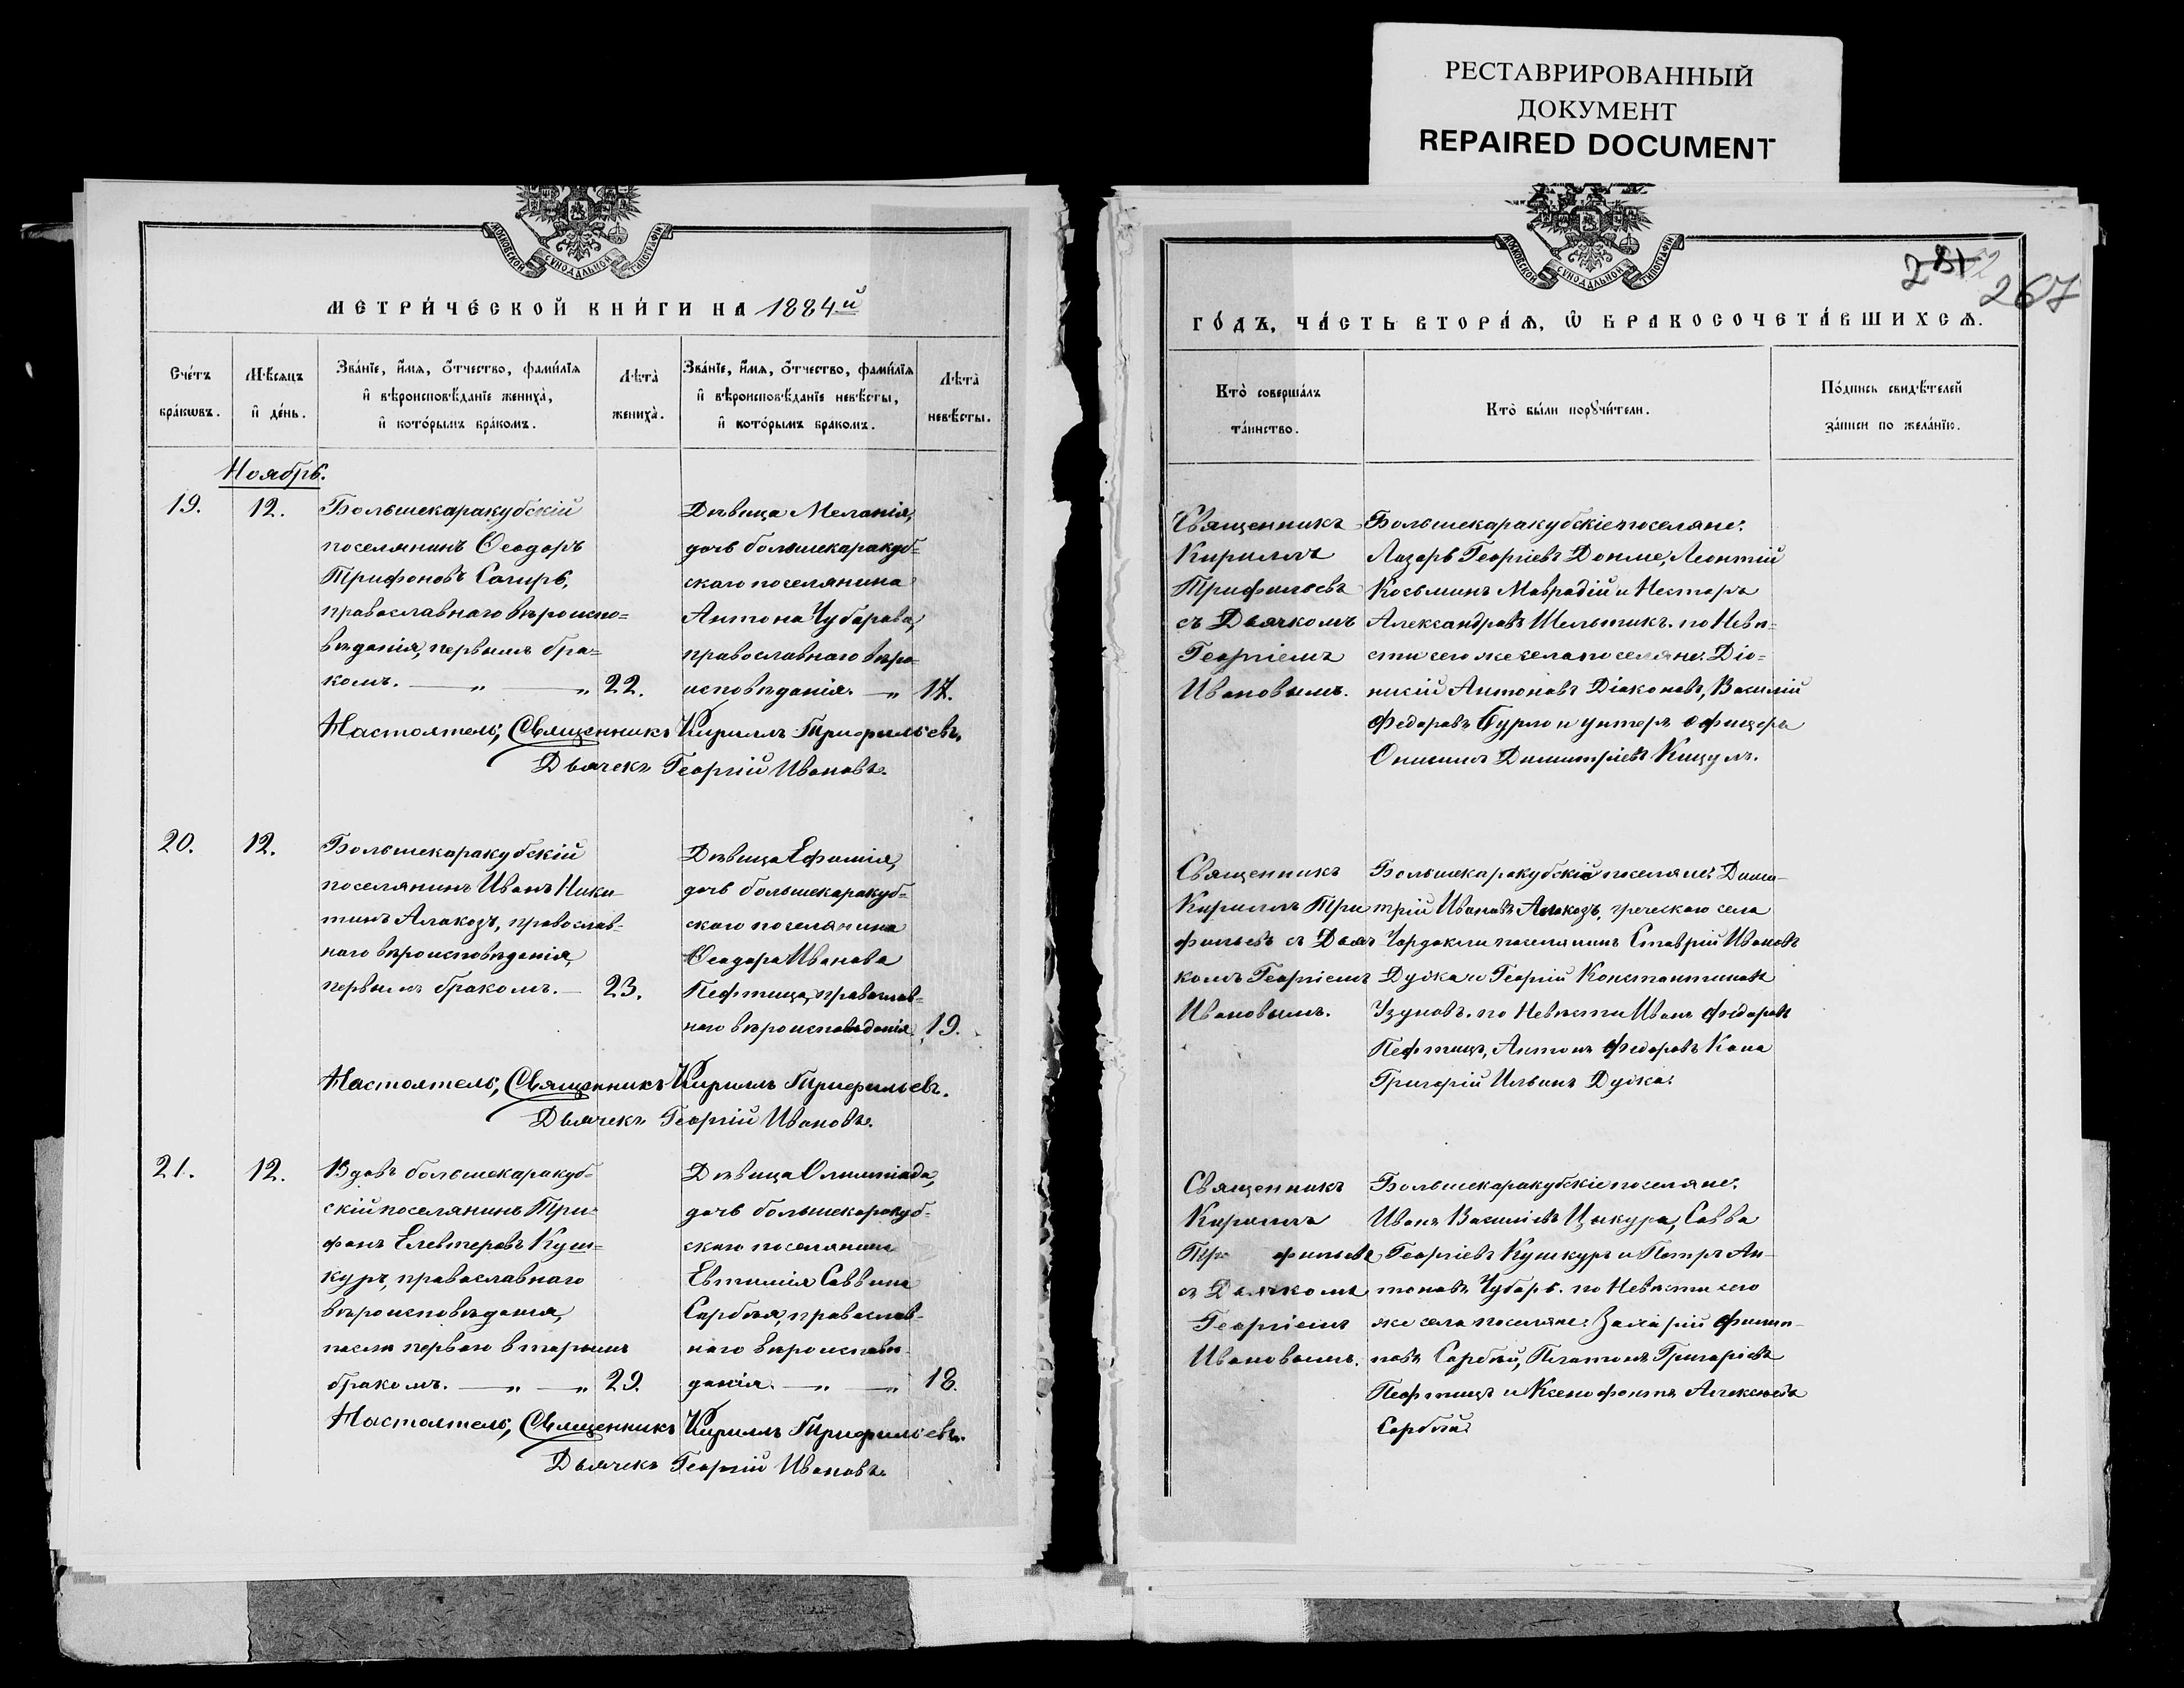 РЕСТАВРИРОВАННЫЙ
ДОКУМЕНТ
REPAIRED DOCUMENT
МОСКОВСКОЙ СѴНОДАЛЬНОЙ ТИПОГРАФІИ
МЕТРИ́ЧЕСКОЙ КНИ́ГИ НА 1884й
Сче́тъ
бра́кѡвъ.
Мѣ́сяцъ
и҆ де́нь.
Зва́нїе, и҆́мя, ѻ҆́тчество, фами́лїя
и҆ вѣроисповѣ́данїе жениха̀,
и҆ кото́рымъ бра́комъ.
Лѣта̀
жениха̀.
Зва́нїе, и҆́мя, ѻ҆́тчество, фами́лїя
и҆ вѣроисповѣ́данїе невѣ́сты,
и҆ кото́рымъ бра́комъ.
Лѣта̀
невѣ́сты.
Ноябрь.
19.
12.
Большекаракубскій
поселянинъ Ѳеодоръ
Трифоновъ Сагирь,
православнаго вѣроиспо=
вѣданія, первымъ бра=
комъ. — „ — „
22.
Дѣвица Меланія,
дочь большекаракуб=
скаго поселянина
Антона Чубарова,
православнаго вѣро-
исповѣданія. — „
17.
Настоятель, Священникъ Кириллъ Трифильевъ.
Дьячекъ Георгій Ивановъ.
20.
12.
Большекаракубскій
поселянинъ Иванъ Ники-
тинъ Алакозъ, православ-
наго вѣроисповѣданія,
первымъ бракомъ. —
23.
Дѣвица Ефимія,
дочь большекаракуб=
скаго поселянина
Ѳеодора Иванова
Пефтица, православ=
наго вѣроисповѣданія.
19.
Настоятель, Священникъ Кириллъ Трифильевъ.
Дьячекъ Георгій Ивановъ.
21.
12.
Вдовъ большекаракуб=
скій поселянинъ Три=
фонъ Елевтеровъ Куш=
куръ, православнаго
вѣроисповѣданія,
послѣ перваго вторымъ
бракомъ. — „ — „
29.
Дѣвица Олимпіада,
дочь большекаракуб-
скаго поселянина
Евтимія Саввина
Сарбея, православ-
наго вѣроисповѣ-
данія. — „ — „
18.
Настоятель, Священникъ Кириллъ Трифильевъ.
Дьячекъ Георгій Ивановъ.
МОСКОВСКОЙ СѴНОДАЛЬНОЙ ТИПОГРАФІИ
267
ГО́ДЪ, ЧА́СТЬ ВТОРА́Ѧ, Ѽ БРАКОСОЧЕТА́ВШИХСѦ.
Кто̀ соверша́лъ
та́инство.
Кто̀ бы́ли порꙋчи́тели.
По́дпись свидѣ́телей
за́писи по жела́нїю.
Священникъ
Кириллъ
Трифильевъ
съ Дьячкомъ
Георгіемъ
Ивановымъ.
Большекаракубскіе поселяне:
Лазарь Георгіевъ Донме, Леонтій
Косьминъ Мавродій и Несторъ
Александровъ Шельтикъ. по Невѣ=
сти сего же села поселяне: Діо=
нисій Антоновъ Діаконовъ, Василій
Федоровъ Бурло и унтеръ офицеръ
Онисимъ Димитріевъ Кицулъ.
Священникъ
Кириллъ Три
фильевъ съ Дьяч
комъ Георгіемъ
Ивановымъ.
Большекаракубскіе поселяне: Дими-
трій Ивановъ Алакозъ, греческаго села
Чардакли поселянинъ Ставрій Ивановъ
Дудка и Георгій Константиновъ
Узуновъ. по Невѣсти Иванъ Федоровъ
Пефтицъ, Антонъ Федоровъ Кана
Григорій Ильинъ Дудка:
Священникъ
Кириллъ
Три фильевъ
съ Дьячкомъ
Георгіемъ
Ивановымъ.
Большекаракубскіе поселяне:
Иванъ Василіевъ Цыкура, Савва
Георгіевъ Кушкуръ и Петръ Ан-
тоновъ Чубарь. по Невѣсти сего
же села поселяне: Захарій Филип-
повъ Сарбей, Платонъ Григоріевъ
Пефтицъ и Ксенофонтъ Алексѣевъ
Сарбей: